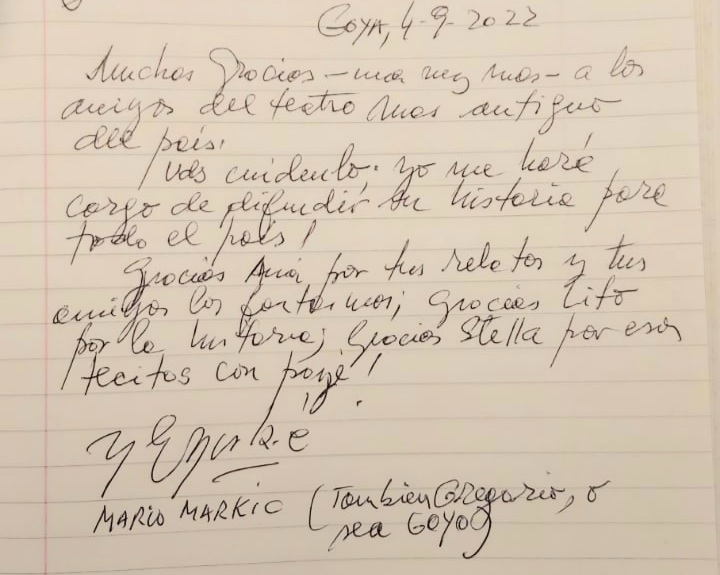 GOYA, 4-9-2022
Muchas Gracias - a los
amigos del teatro mas antiguo
del país.
Vds cuidenlo; yo me haré
cargo de difundir su historia para
todo el país!
Gracias Ana por tus relatos y tus
amigos los fantasmas; Gracias Tito
por la historia; Gracias Stella por esos
tecitos con payé!
MARIO MARKIC (Tambien Gregorio, o
sea GOYO)